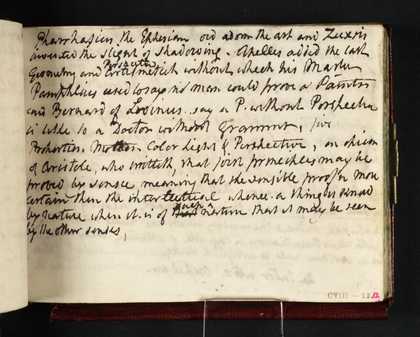 Pharrhasius the Ephesian did adorn the art and Zeuxis
invented the slight of Shadowing. Apelles added the last
Geometry and Arithmetick without which his Master
Pamphilus used to say no man could prove a Painter
and Bernard of Lovinus. say a P. without Perspective
is like to a Doctor without Grammar, five
Proportion. Motion Color Light & Perspective, an opinion
of Aristotle, who writeth, that first principles may be
proved by sense, meaning that the sensible proof is more
certain then the intellectual whence a thing is known
by nature when it is of such a nature that it may be seen
by the other senses,
CVIII - 12